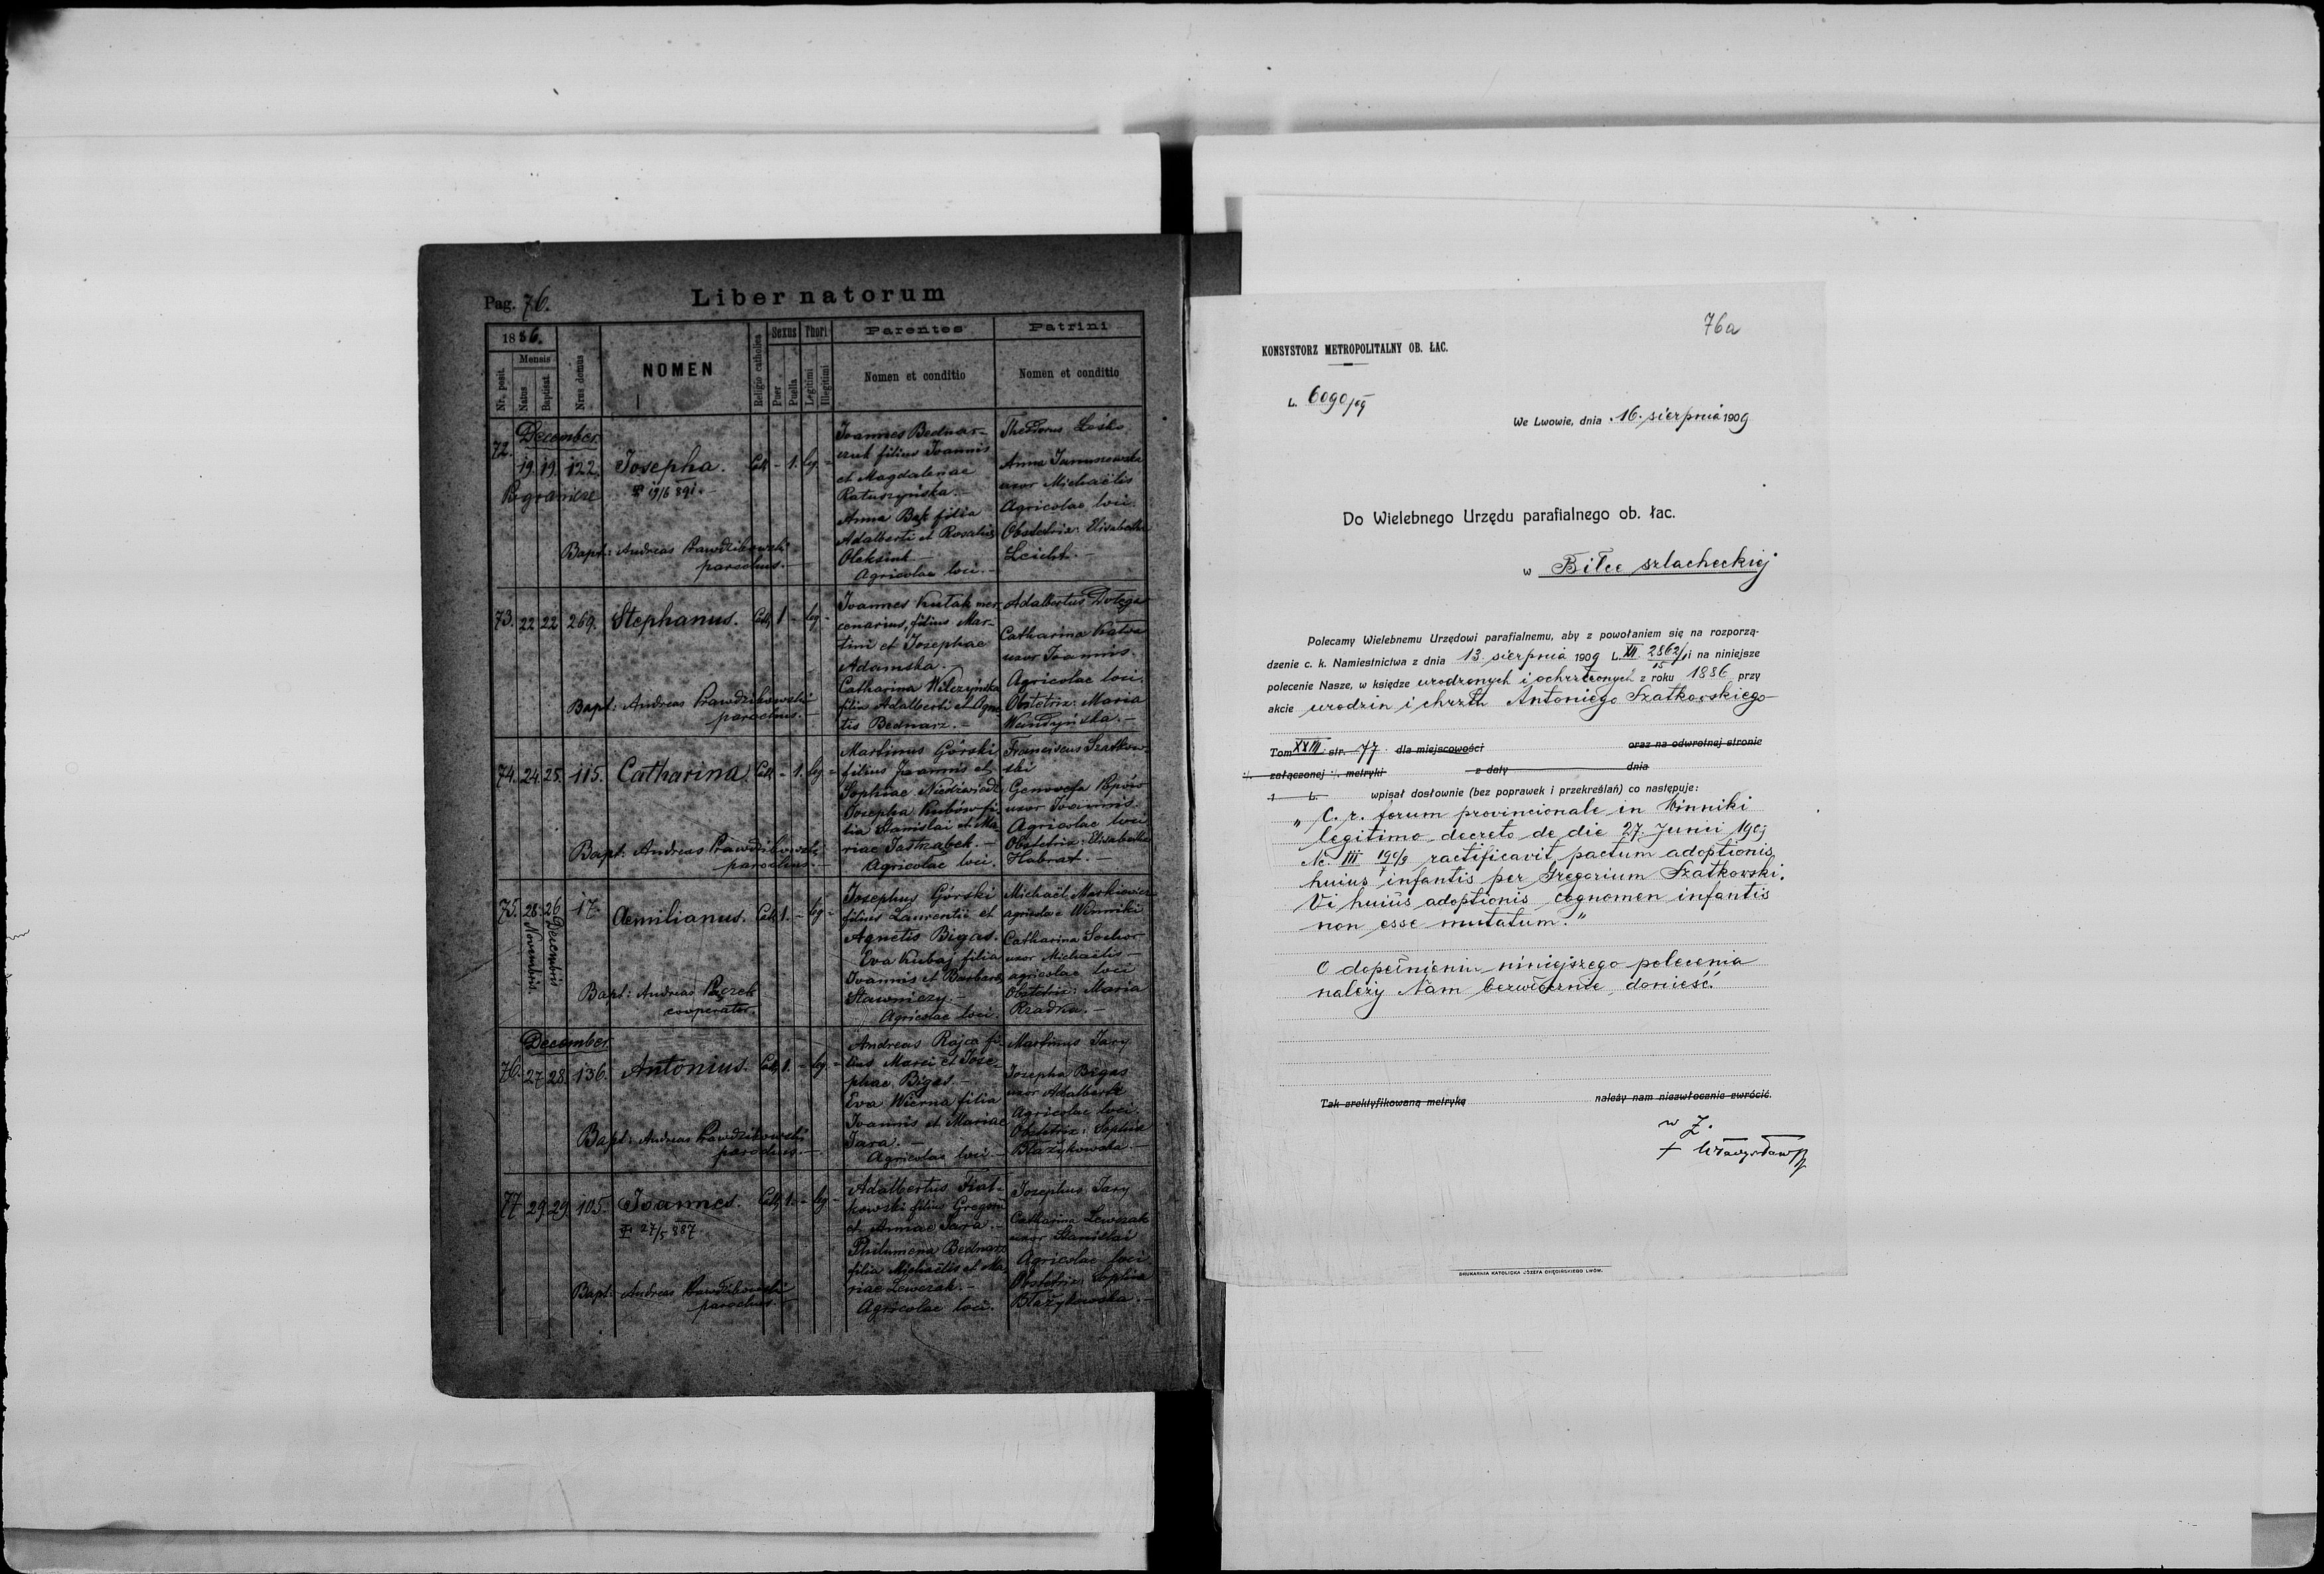 Pag. 76.
Liber natorum
1886.
Mensis
Nr. posit.
Natus
Baptisat.
Nrus domus
NOMEN
Religio catholica
Sexus
Puer
Puella
Thori
Legitimi
Illegitimi
Parentes
Nomen et conditio
Patrini
Nomen et conditio
December
72. 19. 19. 122. Josepha. Cath - 1. leg. -
✠ 19/6 891. -
Joannes Bednar-
czuk filius Joannis
et Magdalenae
Raturzyńska. -
Anna Bąk filia
Adalberti et Rosaliae
Oleksiuk
Agricolae loci. -
Theodorus Łośko
Anna Januszewska
uxor Michaëlis
Agricolae loci
Obstetrix: Elisabetha
Leicht. -
Bapt: Andreas Prawdzikowski
parochus. -
73. 22 22 269. Stephanus. Cath 1 - leg -
Joannes Kutak mer-
cenarius, filius Mar-
tini et Josephae
Adamska. -
Catharina Wilczyńska
filia Adalberti et Agne-
tis Bednarz. -
Adalbertus Dołęga
Catharina
uxor Joannis
Agricolae loci.
Obstetrix: Maria
Wandyńska. -
Bapt: Andreas Prawdzikowski
parochus. -
74. 24. 25. 115. Catharina Cath - 1. leg. -
Martinus Górski
filius Joannis et
Sophiae Niedźwiedź
Josepha Kubów fi-
lia Stanislai et Ma-
riae Jastrząbek. -
Agricolae loci.
Franciscus Szatkow-
ski
Genovefa
uxor Joannis.
Agricolae loci
Obstetrix: Elisabetha
Habrat. -
Bapt: Andreas Prawdzikowski
parochus. -
75. 28. Novembris. 26 Decembris 17. Aemilianus. Cath 1. - leg -
Josephus Górski
filius Laurentii et
Agnetis Bigas.
Eva Kubaj filia
Joannis et Barbarae
Sławniczy. -
Agricolae loci.
Michaël Markiewicz
agricola e Winniki
Catharina Sochor
uxor Michaëlis -
agricolae loci
Obstetrix: Maria
Rzadka. -
Bapt: Andreas Pączek
cooperator.
December
76. 27. 28. 136. Antonius. Cath 1. - leg -
Andreas Rajca fi-
lius Marci et Jose-
phae Bigas. -
Eva Wierna filia
Joannis et Mariae
Jara. -
Agricolae loci -
Martinus Jary
Josepha Bigas
uxor Adalberti
Agricolae loci.
Obstetrix: Sophia
Błażykowska. -
Bapt: Andreas Prawdzikowski
parochus. -
77 29. 29. 105. Joannes. Cath 1. - leg -
✠ 27/5 887
Adalbertus Szat-
kowski filius Gregorii
et Annae Jara. -
Philumena Bednarz
filia Michaëlis et Ma-
riae Lewczak. -
Agricolae loci.
Josephus Jary
Catharina Lewczak
uxor Stanislai
Agricolae loci
Obstetrix: Sophia
Błażykowska. -
Bapt: Andreas Prawdzikowski
parochus. -
76a
KONSYSTORZ METROPOLITALNY OB. ŁAC.
L. 6090/09
We Lwowie, dnia 16. sierpnia 1909
Do Wielebnego Urzędu parafialnego ob. łac.
w Biłce szlacheckiej
Polecamy Wielebnemu Urzędowi parafialnemu, aby z powołaniem się na rozporzą-
dzenie c. k. Namiestnictwa z dnia 13. sierpnia 1909 L. XII. 2862/15 i na niniejsze
polecenie Nasze, w księdze urodzonych i ochrzczonych z roku 1886 przy
akcie urodzin i chrztu Antoniego Szatkowskiego
Tom XXIII. str. 77 dla miejscowości oraz na odwrotnej stronie
:/. załączonej ./. metryki z daty dnia
1 L. wpisał dosłownie (bez poprawek i przekreślań) co następuje:
„C. r. forum provincionale in Winniki
legitimo decreto de die 27. Junii 1909
Nc. III 190/9 ractificavit pactum adoptionis
huius infantis per Gregorium Szatkowski.
Vi huius adoptionis cognomen infantis
non esse mutatum."
O dopełnieniu niniejszego polecenia
należy Nam bezwłocznie donieść.
Tak zrektyfikowaną metrykę należy nam niezwłocznie zwrócić.
w Z.
† Władysław
DRUKARNIA KATOLICKA JÓZEFA CHĘCIŃSKIEGO LWÓW.